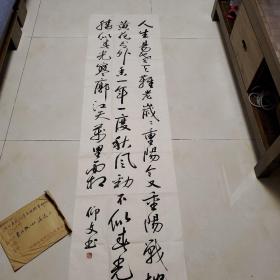 人生易老天難老歲々重陽今又重陽戰地
黃花分外香一年一度秋風勁不似春光
勝似春光寥廓江天萬里霜
仰文书